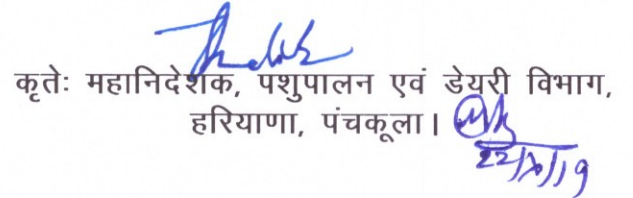 कृतेः महानिदेशक, पशुपालन एवं डेयरी विभाग,
हरियाणा, पंचकूला।